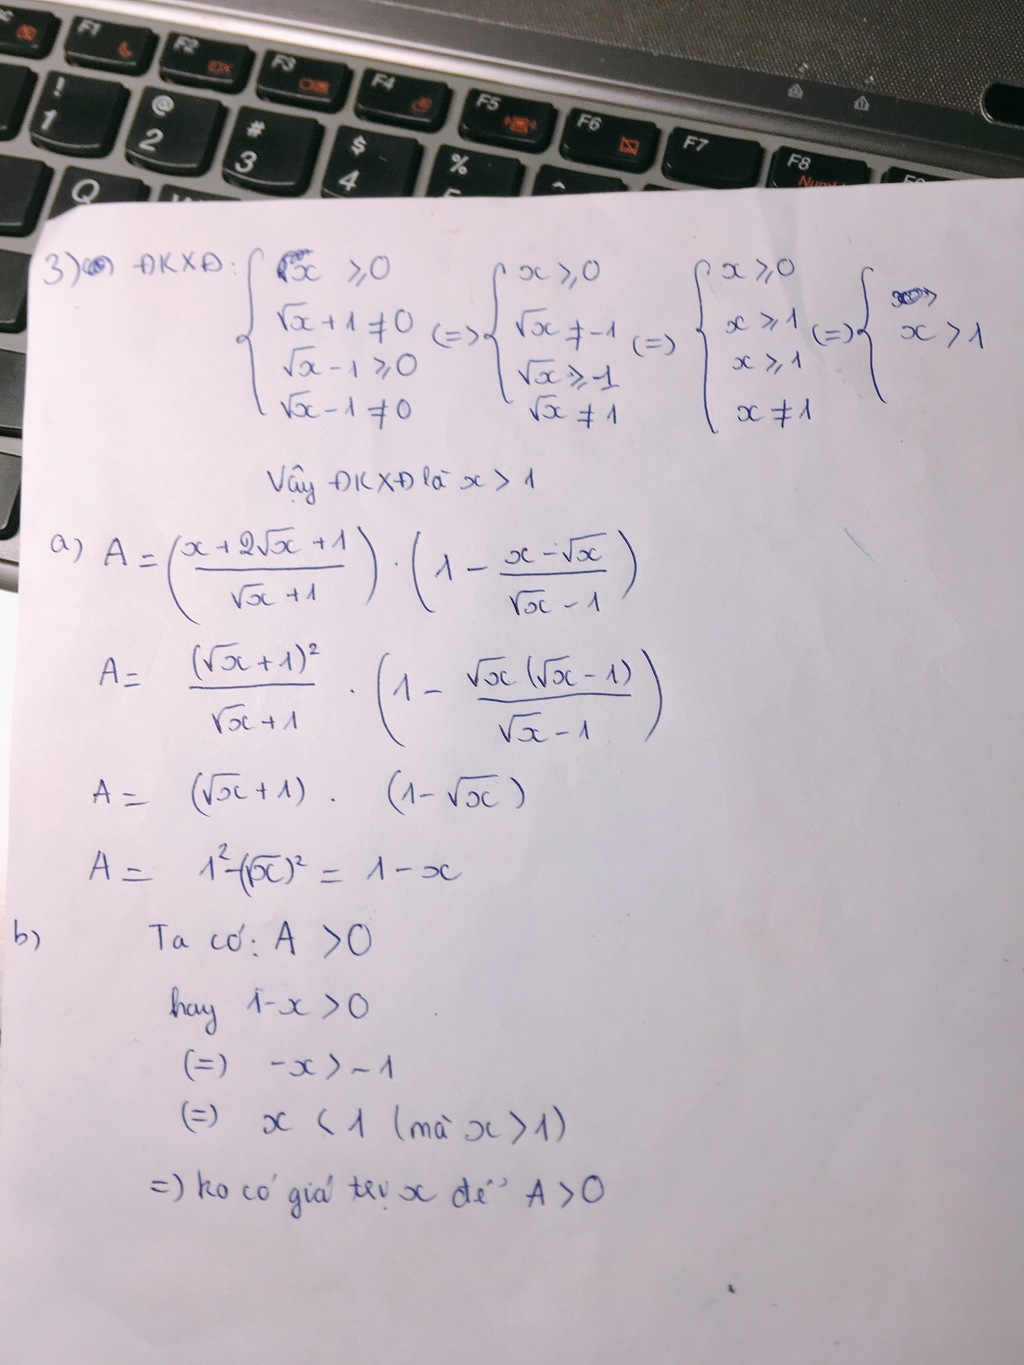 F1 F2 F3 F4 F5 F6 F7 F8
! 1 @ 2 # 3 $ 4 %
Q
3) ĐKXĐ: { √x ⩾ 0 { x ⩾ 0 { x ⩾ 0 {
√x + 1 ≠ 0 (=) √x ≠ -1 (=) x ⩾ 1 (=) x > 1
√x - 1 ⩾ 0 √x ⩾ -1 x ⩾ 1
√x - 1 ≠ 0 √x ≠ 1 x ≠ 1
Vậy ĐKXĐ là x > 1
a) A = ((x + 2√x + 1)/(√x + 1)) . (1 - (x - √x)/(√x - 1))
A = (√x + 1)²/(√x + 1) . (1 - √x (√x - 1)/(√x - 1))
A = (√x + 1) . (1 - √x)
A = 1² - (√x)² = 1 - x
b) Ta có: A > 0
hay 1 - x > 0
(=) -x > -1
(=) x < 1 (mà x > 1)
=) ko có giá trị x để A > 0